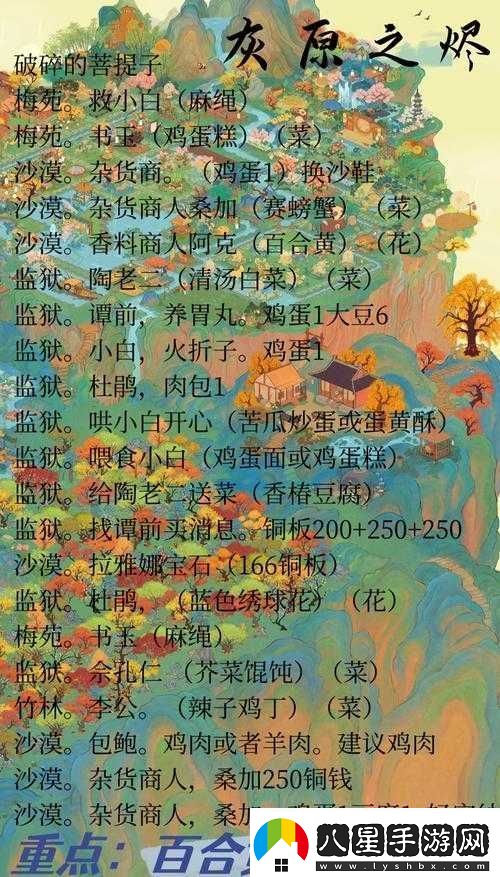 灰原之烬
破碎的菩提子
梅苑。救小白（麻绳）
梅苑。书玉（鸡蛋糕）（菜）
沙漠。杂货商。（鸡蛋1）换沙鞋
沙漠。杂货商人桑加（赛螃蟹）（菜）
沙漠。香料商人阿克（百合黄）（花）
监狱。陶老二（清汤白菜）（菜）
监狱。谭前，养胃丸。鸡蛋1大豆6
监狱。小白，火折子。鸡蛋1
监狱。杜鹃，肉包1
监狱。哄小白开心（苦瓜炒蛋或蛋黄酥）
监狱。喂食小白（鸡蛋面或鸡蛋糕）
监狱。给陶老二送菜（香椿豆腐）
监狱。找谭前买消息。铜板200+250+250
沙漠。拉雅娜宝石（166铜板）
监狱。杜鹃，（蓝色绣球花）（花）
梅苑。书玉（麻绳）
监狱。佘扎仁（芥菜馄饨）（菜）
竹林。李公。（辣子鸡丁）（菜）
沙漠。包鲍。鸡肉或者羊肉。建议鸡肉
沙漠。杂货商人，桑加250铜钱
沙漠。杂货商人，桑加，鸡蛋1豆腐1
重点：百合
八星手游网
www.lyshbx.com